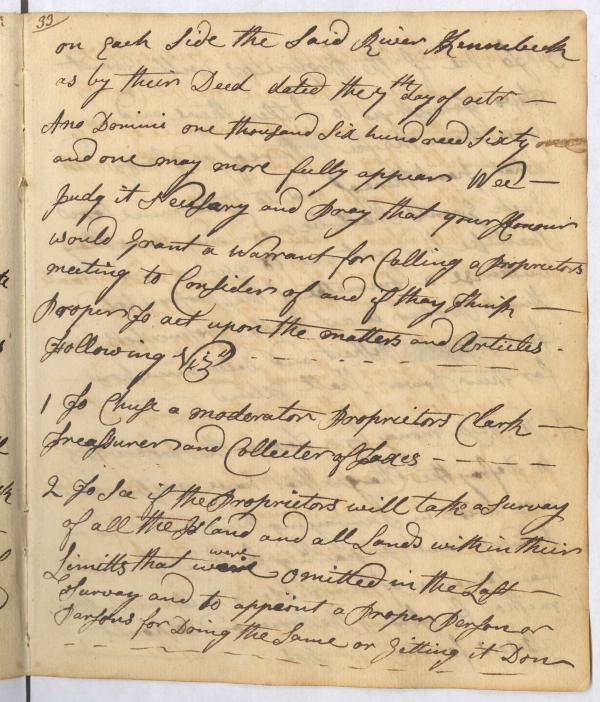 33
on Each Side the Said River Kennebeck
as by their Deed dated the 7th day of octr —
Ano Dominii one thousand Six hundreed Sixty
and one may more fully appear Wee —
Judg it and Pray that your Honour
would grant a warrant for Calling a Proprietors
meeting to Consider of and if they think —
Proper To act upon the matters and Articles -
Following Viz
1 To Chuse a moderator Proprietors Clark —
Treasurer and Collecter of Taxes - - - -
2 To Se if the Proprietors will take a Survay
of all the Island and all Lands within their
Limitts that were omitted in the Last —
Survay and to appoint a Proper Person or
Parsons for Doing the Same or Gitting it Don